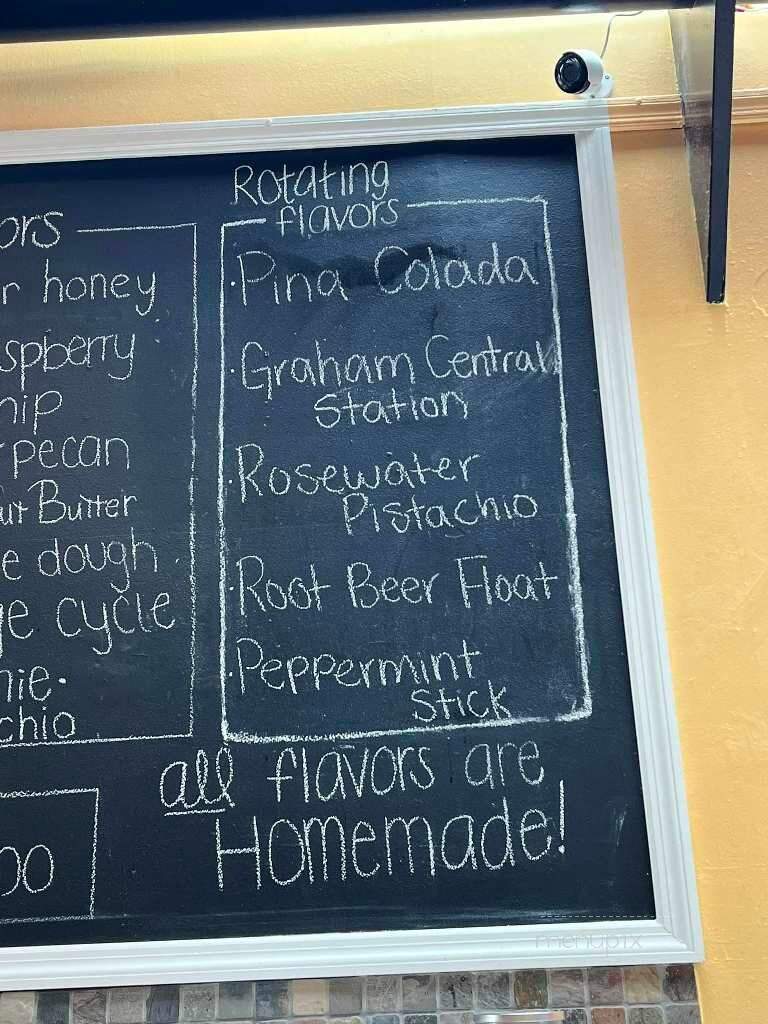 ors
r honey
spberry
hip
pecan
ut Butter
e dough
ge cycle
nie.
chio
00
Rotating
flavors
·Pina Colada
·Graham Central
Station
·Rosewater
Pistachio
·Root Beer Float
·Peppermint
Stick
all flavors are
Homemade!
menupix